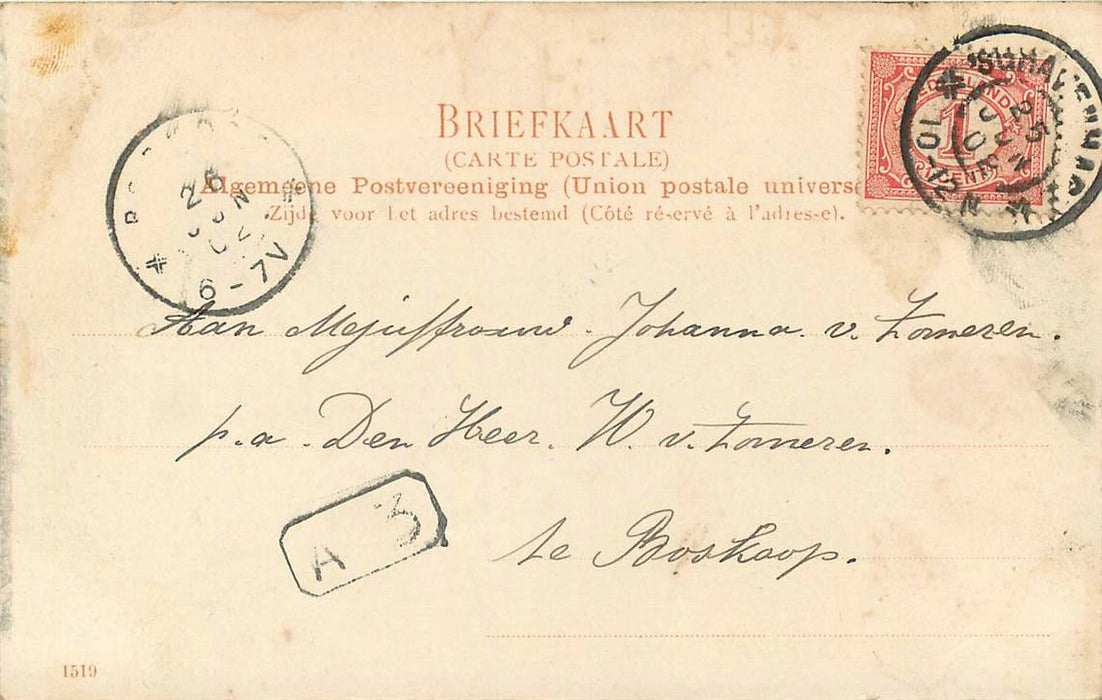 BRIEFKAART
(CARTE POSTALE)
Algemeene Postvereeniging (Union postale univers
Zijde voor het adres bestemd (Côté réservé à l'adresse).
1
'SGRAVENHAGE
25
JUN
10-12 N
26
JUN
02
6-7V
Aan Mejuffrouw. Johanna. v. Zomeren.
p.a. Den Heer. W. v. Zomeren.
te Boskoop.
A 3
1519